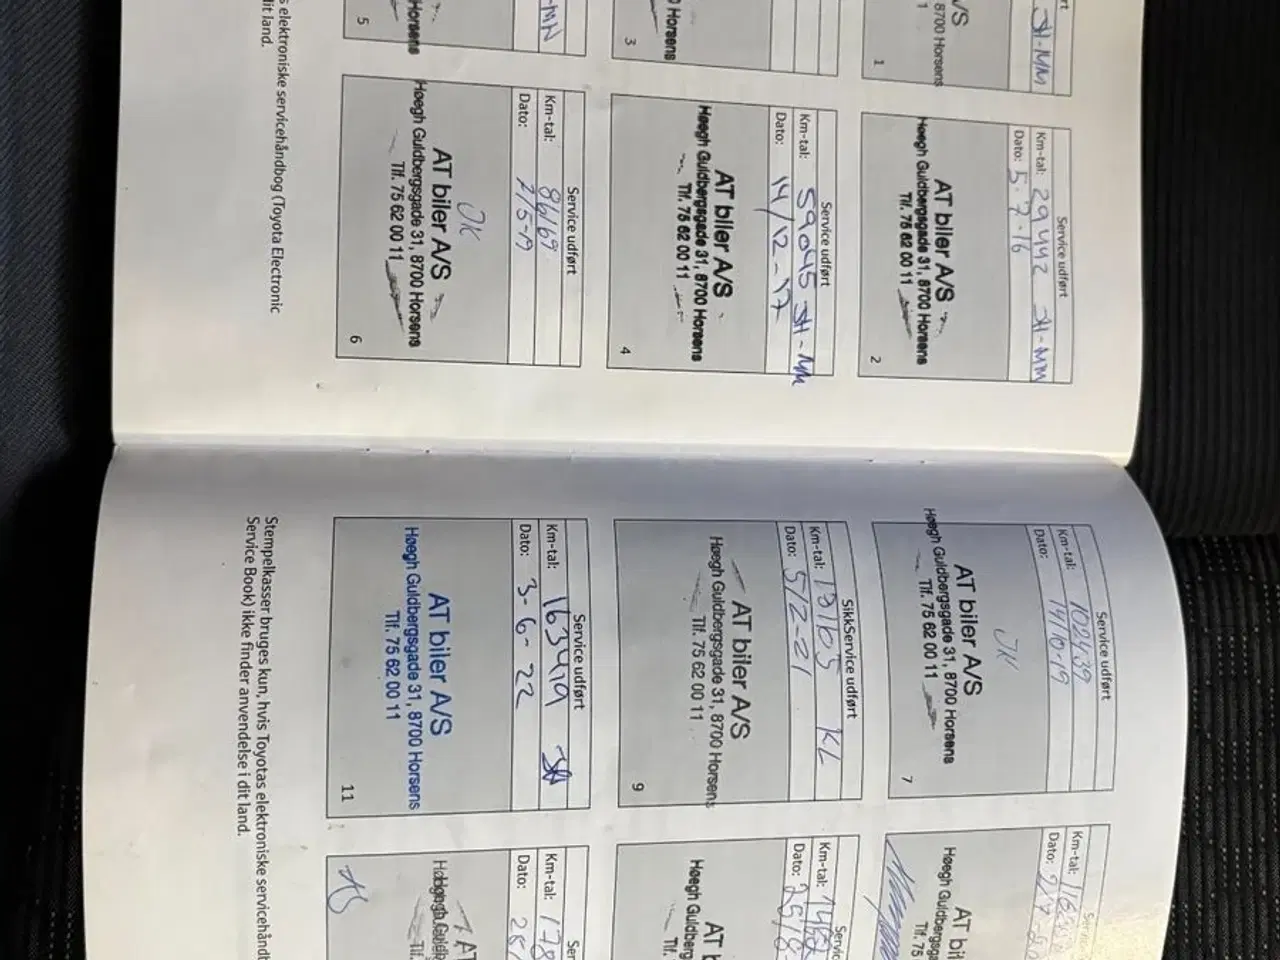 JH-MM
A/S
8700 Horsens
1
Service udført
Km-tal: 29442 JH-MM
Dato: 5-7-16
AT biler A/S
Høegh Guldbergsgade 31, 8700 Horsens
Tlf. 75 62 00 11
2
Horsens
3
Service udført
Km-tal: 59045 JH-MM
Dato: 14/12-17
AT biler A/S
Høegh Guldbergsgade 31, 8700 Horsens
Tlf. 75 62 00 11
4
-MN
Horsens
5
Service udført
Km-tal: 86169
Dato: 2/5-19
JK
AT biler A/S
Høegh Guldbergsgade 31, 8700 Horsens
Tlf. 75 62 00 11
6
elektroniske servicehåndbog (Toyota Electronic
dit land.
Service udført
Km-tal: 102439
Dato: 14/10-19
JK
AT biler A/S
Høegh Guldbergsgade 31, 8700 Horsens
Tlf. 75 62 00 11
7
Km-tal:
Dato:
AT
Høegh Guldbergsga
Tlf. 75
SikkService udført
Km-tal: 131105 KL
Dato: 5/2-21
AT biler A/S
Høegh Guldbergsgade 31, 8700 Horsens
Tlf. 75 62 00 11
9
Km-tal:
Dato:
AT
Høegh Guldberg
Tlf.
Service udført
Km-tal: 163419 JH
Dato: 3-6-22
AT biler A/S
Høegh Guldbergsgade 31, 8700 Horsens
Tlf. 75 62 00 11
11
Km-tal: 178
Dato:
AT
Tlf.
Stempelkasser bruges kun, hvis Toyotas elektroniske servicehåndb
Service Book) ikke finder anvendelse i dit land.